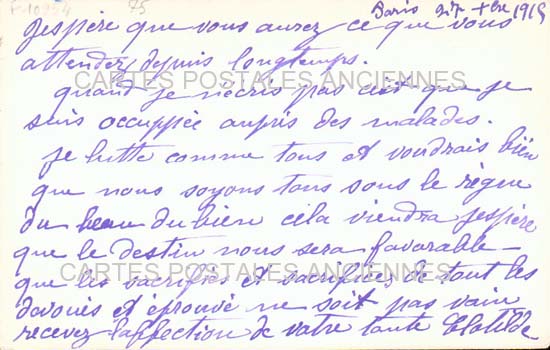 F-10954
75
Paris 27 Xbre 1915
j'espère que vous aurez ce que vous
attendez depuis longtemps.
CARTES POSTALES ANCIENNES
quand je n'écris pas c'est que je
suis occuppée auprès des malades.
je lutte comme tous et voudrais bien
que nous soyons tous sous le règne
du beau du bien cela viendra j'espère
que le destin nous sera favorable -
CARTES POSTALES ANCIENNES
que les sacrifiés et sacrifices de tout les
dévoués et éprouvé ne soit pas vain
recevez l'affection de votre tante Clotilde